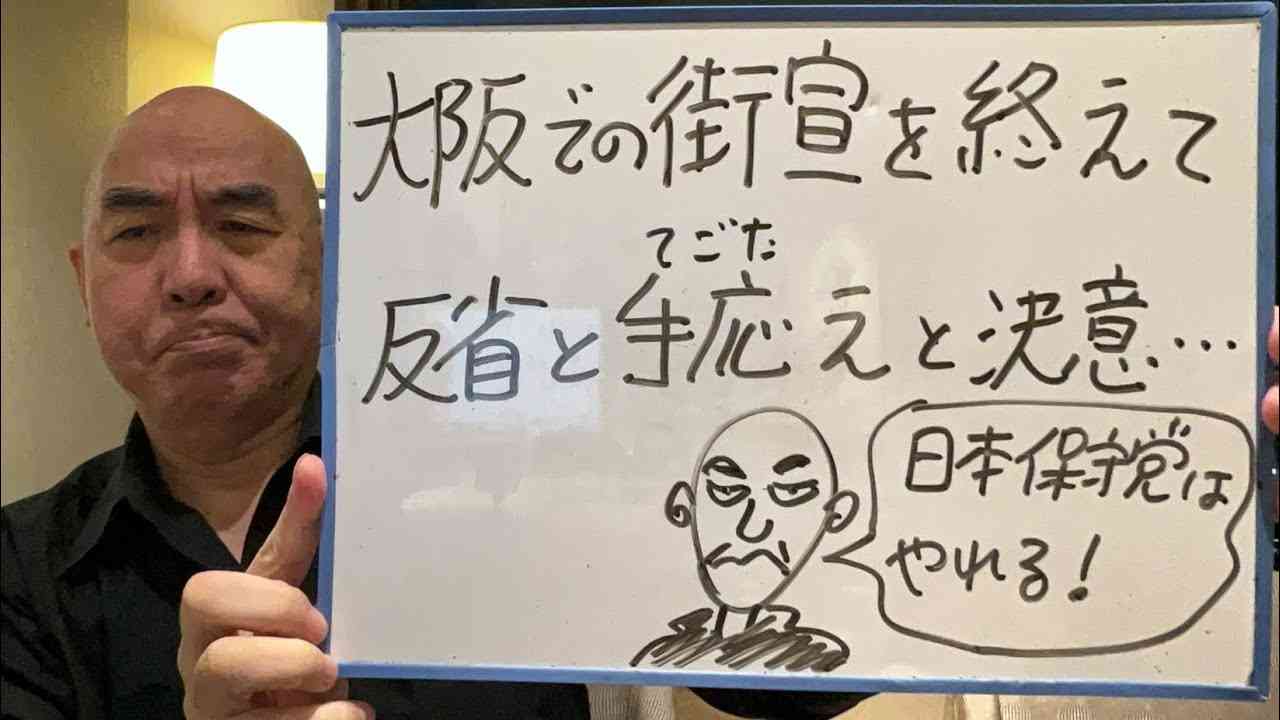 大阪での街宣を終えて
てごた
反省と手応えと決意…
日本保守党は
やれる!